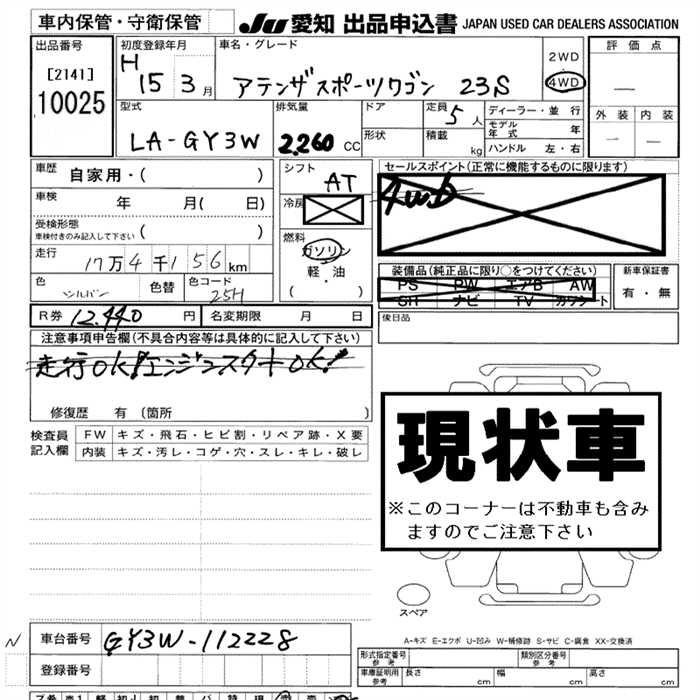 車内保管・守衛保管
JU 愛知 出品申込書 JAPAN USED CAR DEALERS ASSOCIATION
出品番号
[2141]
10025
初度登録年月
H 15 3 月
車名・グレード
アテンザスポーツワゴン 23S
2WD
4WD
評価点
外装 内装
型式
LA-GY3W
排気量
2.260 CC
ドア
形状
定員 5 人
積載 kg
ディーラー・並行
モデル年式 年
ハンドル 左・右
車歴 自家用・( )
車検 年 月( 日)
受検形態
車検付きのみ記入して下さい ( )
走行 17万4千156km
色 シルバー 色替 色コード 25H
シフト AT
冷房
燃料
ガソリン
軽・油
( )
セールスポイント(正常に機能するものに限ります)
4WD
装備品(純正品に限り○をつけてください)
PS PW エアB AW
SH ナビ TV カワシート
新車保証書
有・無
後日品
R券 12.440 円 名変期限 月 日
注意事項申告欄(不具合内容等は具体的に記入して下さい)
走行OK!エンジンスタートOK!
修復歴 有 (箇所 )
検査員記入欄
FW キズ・飛石・ヒビ割・リペア跡・X要
内装 キズ・汚レ・コゲ・穴・スレ・キレ・破レ
現状車
※このコーナーは不動車も含み
ますのでご注意下さい
スペア
A-キズ E-エクボ U-凹み W-補修跡 S-サビ C-腐食 XX-交換済
N
車台番号 GY3W-112228
登録番号
形式指定番号 参考
類別区分番号 参考
車庫証明用 参考 長さ cm 幅 cm 高さ cm